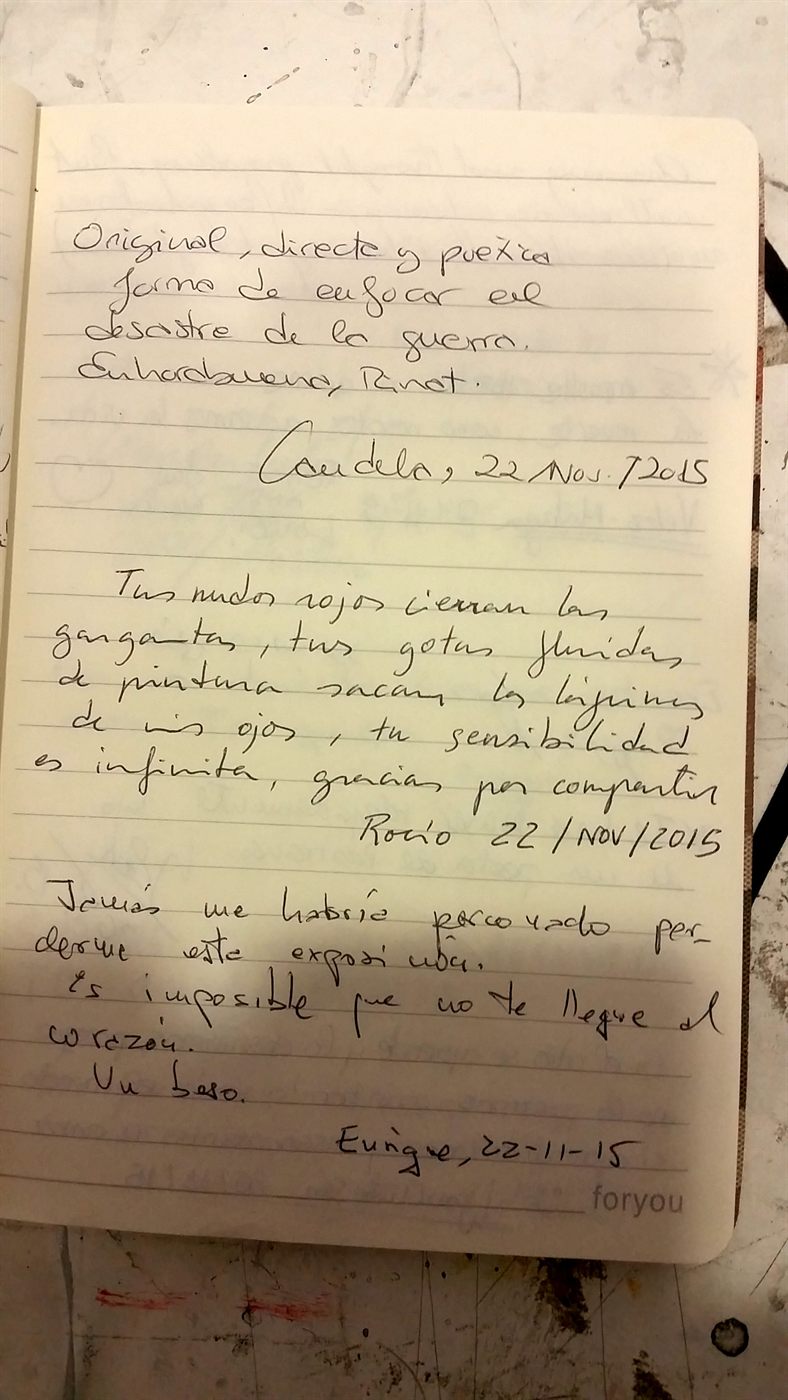 Original, directa y poética
forma de enfocar el
desastre de la guerra.
Enhorabuena, Rinat.
Candela, 22 Nov. / 2015
Tus nudos rojos cierran las
gargantas, tus gotas fluidas
de pintura sacan las lágrimas
de mis ojos, tu sensibilidad
es infinita, gracias por compartir
Rocío 22/NOV/2015
Jamás me habría perdonado per-
derme esta exposición.
Es imposible que no te llegue al
corazón.
Un beso.
Enrique, 22-11-15
foryou